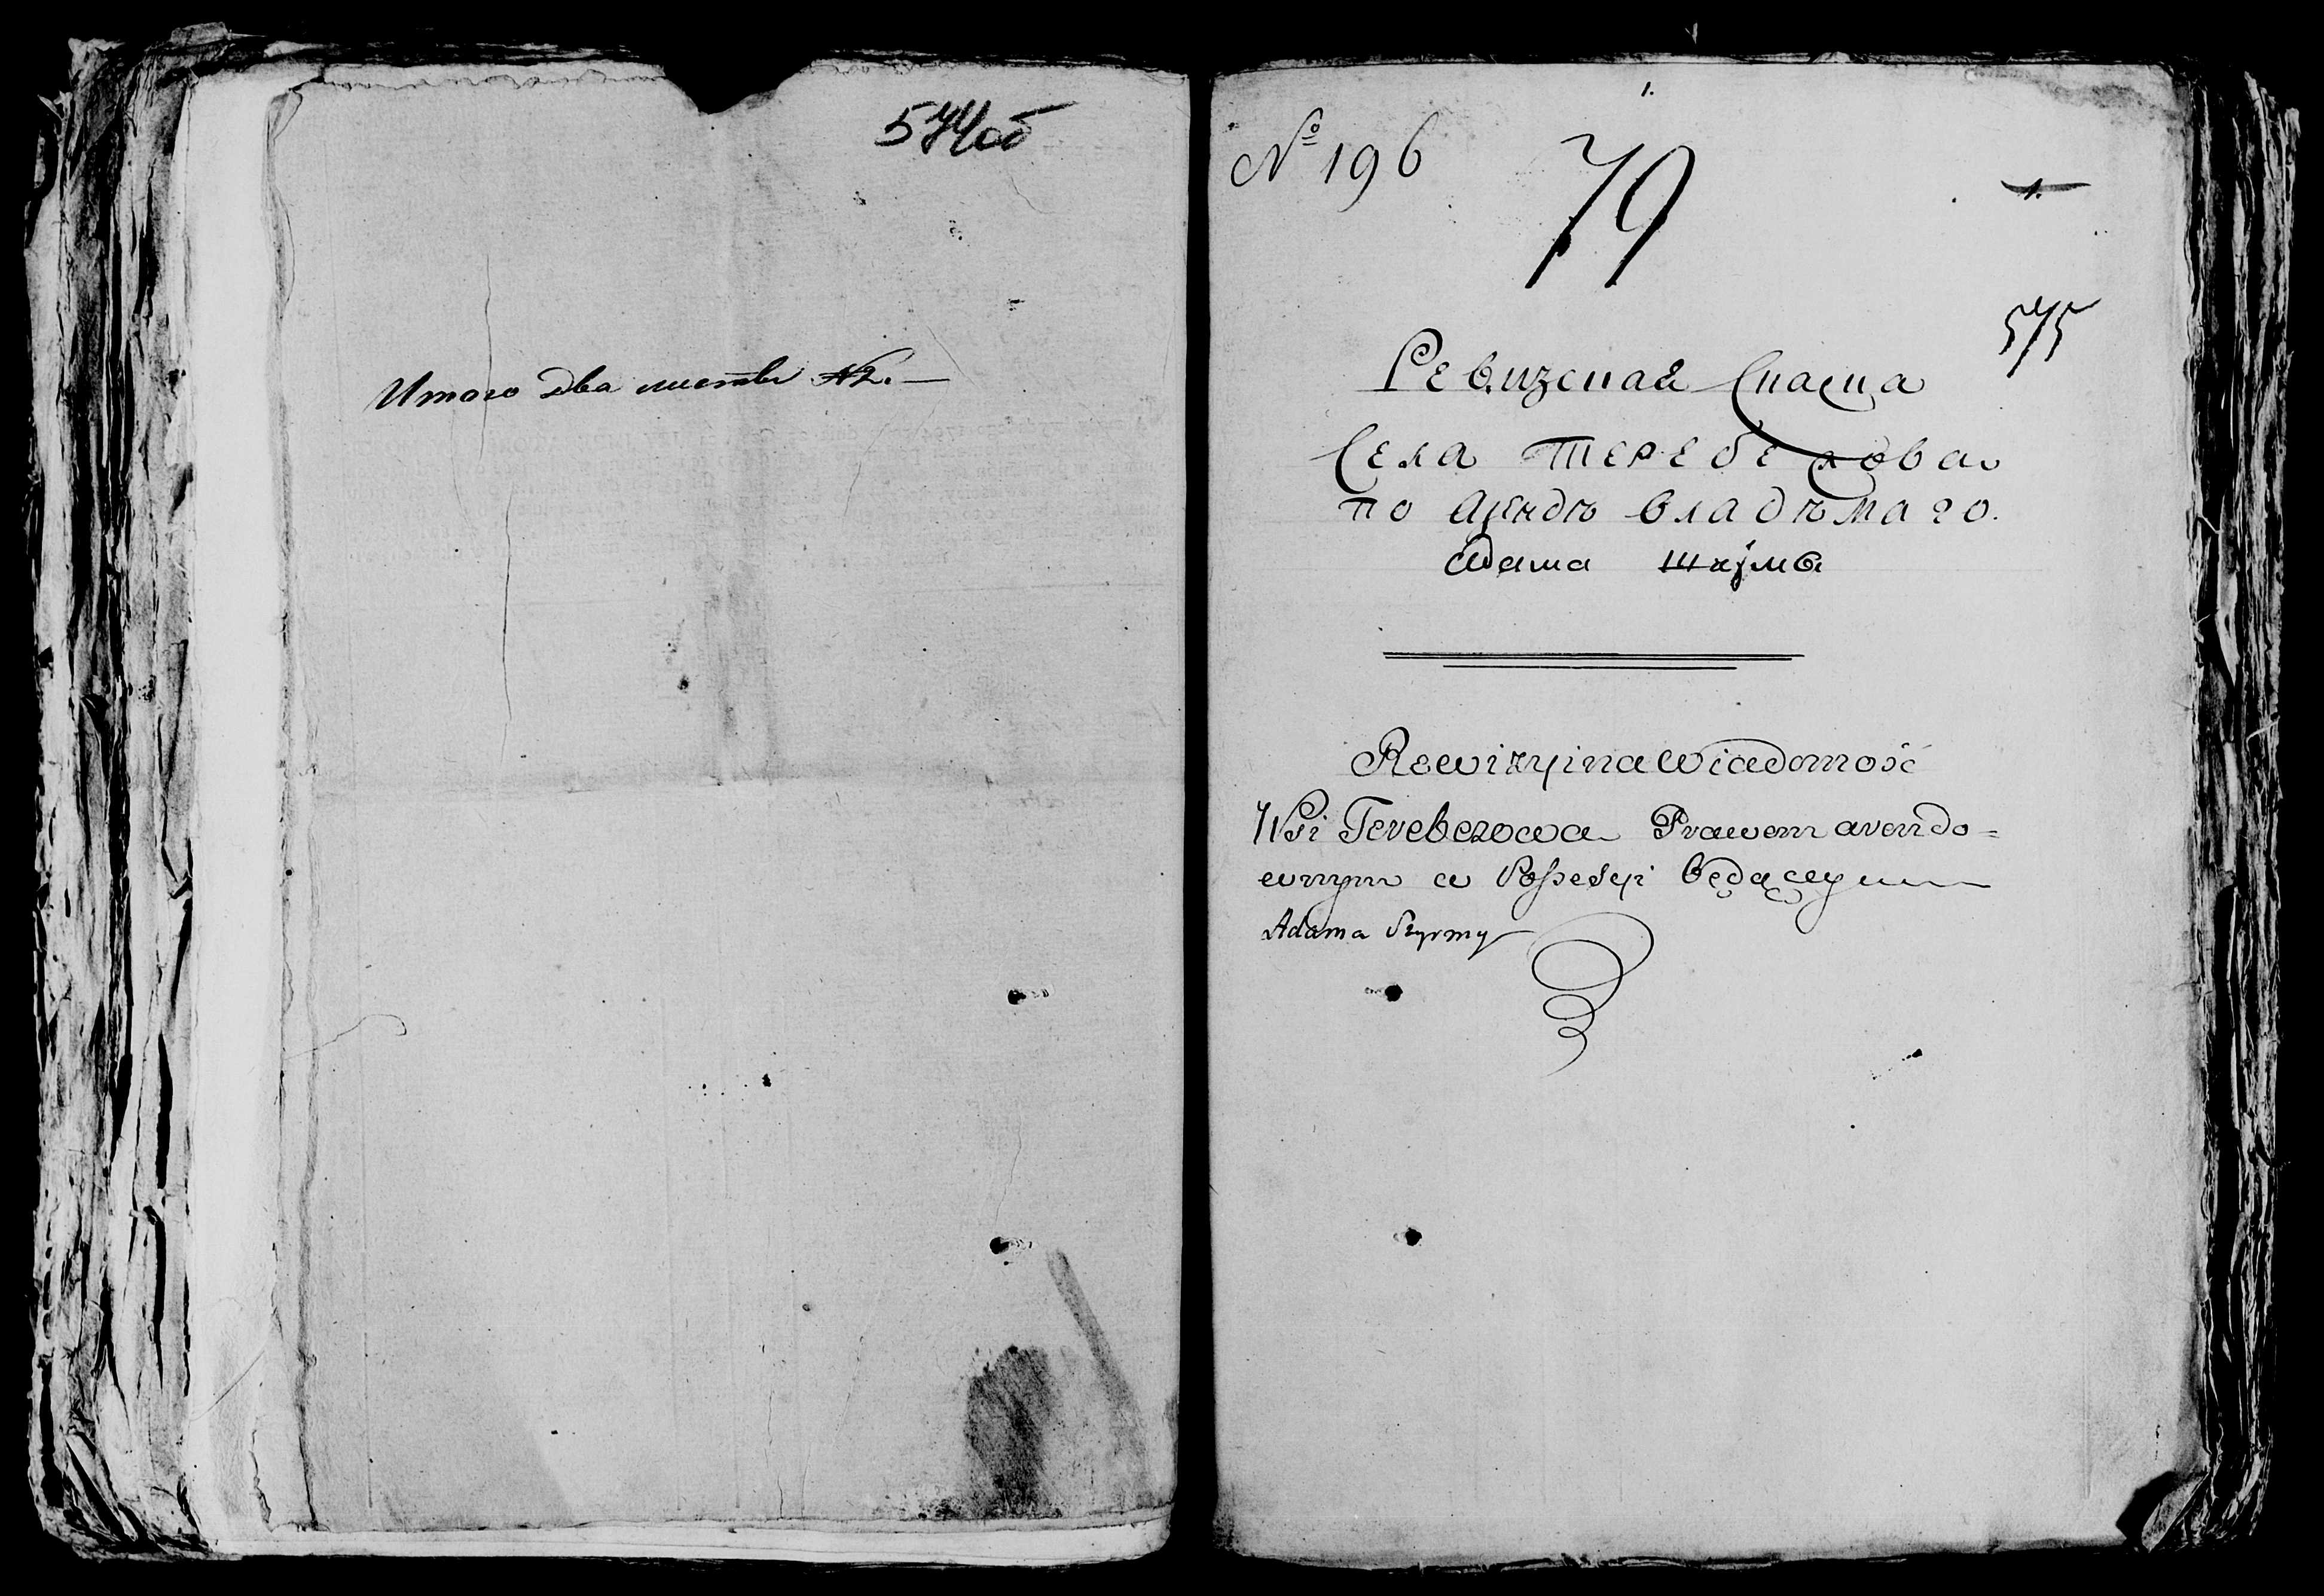 574об
Итого два листа №2. —
1.
№ 196
79
1.
575
Ревизская Скаска
Села Теребежова
по Арендѣ владѣмаго.
Адама
Rewizyina Wiadomość
Wsi Terebezowa Prawem arendo=
wnym w Possesyi będącey
Adama Szyrmy